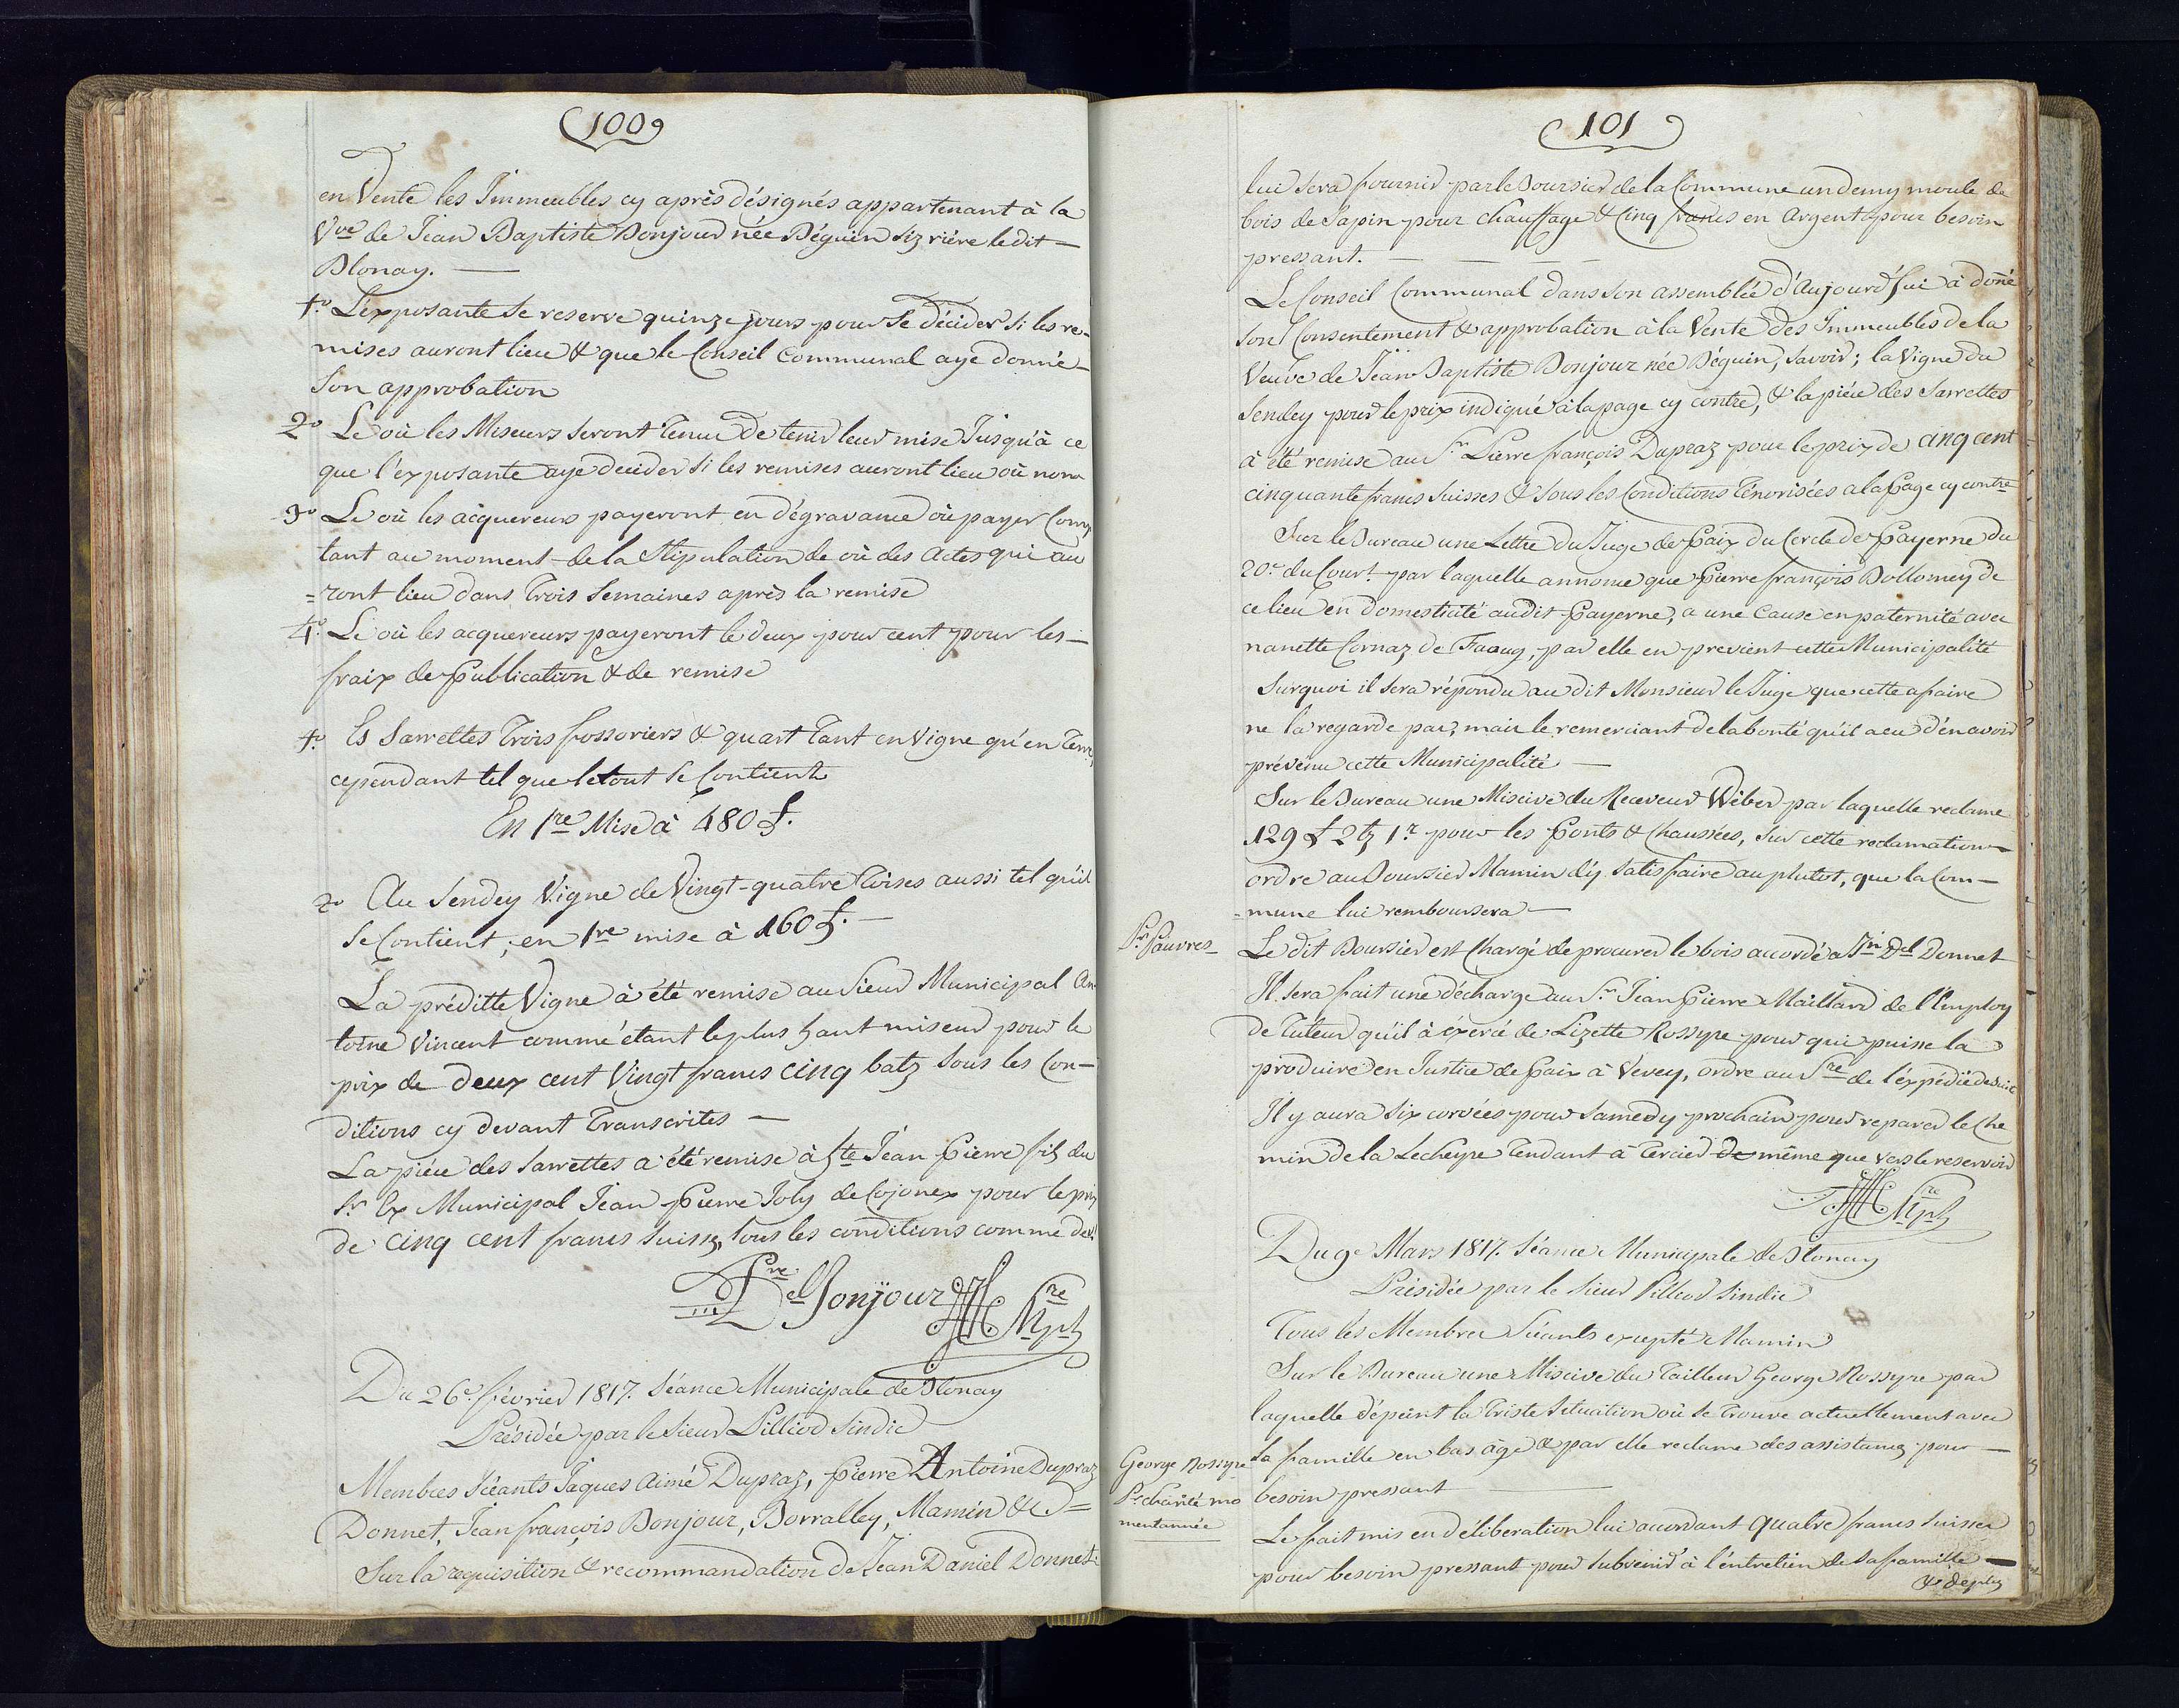 100
en Vente les Immeubles cy après désignés appartenant à la
Vve de Jean Baptiste Bonjour née Béguin siz riére le dit
Blonay.
1o L'exposante se reserve quinze jours pour se décider si les re-
mises auront lieu & que le Conseil Communal aye donné
son approbation
2o Le où les Miseurs seront tenu de tenir leur mise Jusqu'à ce
que l'exposante aye decider si les remises auront lieu où non
3o Le où les acquereurs payeront en dégravance où payer Comp
tant au moment de la Stipulation de où des Actes qui au
=ront lieu dans trois Semaines après la remise
4o Le où les acquereurs payeront le deux pour cent pour les
fraix de Publication & de remise
1o Es Sarrettes Trois fossoriers & quart tant en Vigne qu'en Terre,
cependant tel que le tout se Contient
En 1re Mise à 480 f.
2o Au Sendey Vigne de Vingt-quatre Toises aussi tel qu'il
se Contient, en 1re mise à 160 f.
La préditte Vigne à été remise au Sieur Municipal An
toine Vincent comme étant le plus haut miseur pour le
prix de deux cent Vingt francs cinq batz sous les Con-
ditions cy devant Transcrites
La piéce des Sarrettes a été remise à hte Jean Pierre fils du
Sr Ex Municipal Jean Pierre Joly de Cojonex pour le prix
de cinq cent francs suisses, sous les conditions comme devt
Bonjour
Du 26e février 1817. Séance Municipale de Blonay
Présidée par le Sieur Pilliod Sindic
Membres Séants Jaques Aimé Dupraz, Pierre Antoine Dupraz
Donnet, Jean françois Bonjour, Borralley, Mamin &
Sur la requisition & recommandation de Jean Daniel Donnet
101
lui sera fournir par le Boursier de la Commune un demy moule de
bois de Sapin pour chauffage & Cinq francs en Argent pour besoin
pressant.
Le Conseil Communal dans son assemblée d'Aujourd'hui à doné
son Consentement & approbation à la Vente des Immeubles de la
Veuve de Jean Baptiste Bonjour née Béguin, savoir; la Vigne du
Sendey pour le prix indiqué à la page cy contre, & la piéce des Sarrettes
à été remise au Sr. Pierre françois Dupraz pour le prix de cinq cent
cinquante francs Suisses & sous les Conditions Ténorisées a la Page cy contre
Sur le Bureau une Lettre du Juge de Paix du Cercle de Payerne du
20e du Court par laquelle annonce que Pierre françois Bollomey de
ce lieu en Domesticité audit Payerne, a une Cause en paternité avec
nanette Cornaz de Faoug, par elle en previent cette Municipalité
Surquoi il sera répondu au dit Monsieur le Juge que cette afaire
ne la regarde pas, mais le remerciant de la bonté qu'il a eu d'en avoir
prévenu cette Municipalité
Sur le Bureau une Miscive du Receveur Wéber par laquelle reclame
129 f 2 bz 1 r pour les Ponts & Chaussées, sur cette reclamation
ordre au Boursier Mamin d'y satisfaire au plutot, que la Com-
=mune lui remboursera
Pr Pauvres
Le dit Boursier est Chargé de procurer le bois accordé a Jn Del Donnet
Il sera fait une décharge au Sr. Jean Pierre Maillard de l'Employ
de Tuteur qu'il à éxercé de Lizette Rossyre pour qui puisse la
produire en Justice de Paix à Vevey, ordre au Sre de l'éxpédié de suite
Il y aura Six corvées pour Samedy prochain pour reparer le Che
min de la Lecheyre tendant à Tercier de même que vers le reservoir
Du 9e Mars 1817. Séance Municipale de Blonay
Présidée par le Sieur Pilliod Sindic
Tous les Membres Séants excepté Mamin
Sur le Bureau une Miscive du Tailleur George Rossyre par
laquelle dépeint la triste situation où se trouve actuellement avec
George Rossyre
sa famille en bas âge & par elle reclame des assistances pour
Pr charité mo
mentannée
besoin pressant
Le fait mis en déliberation lui acordant quatre francs suisses
pour besoin pressant pour subvenir à l'éntretien de sa famille
& de plus